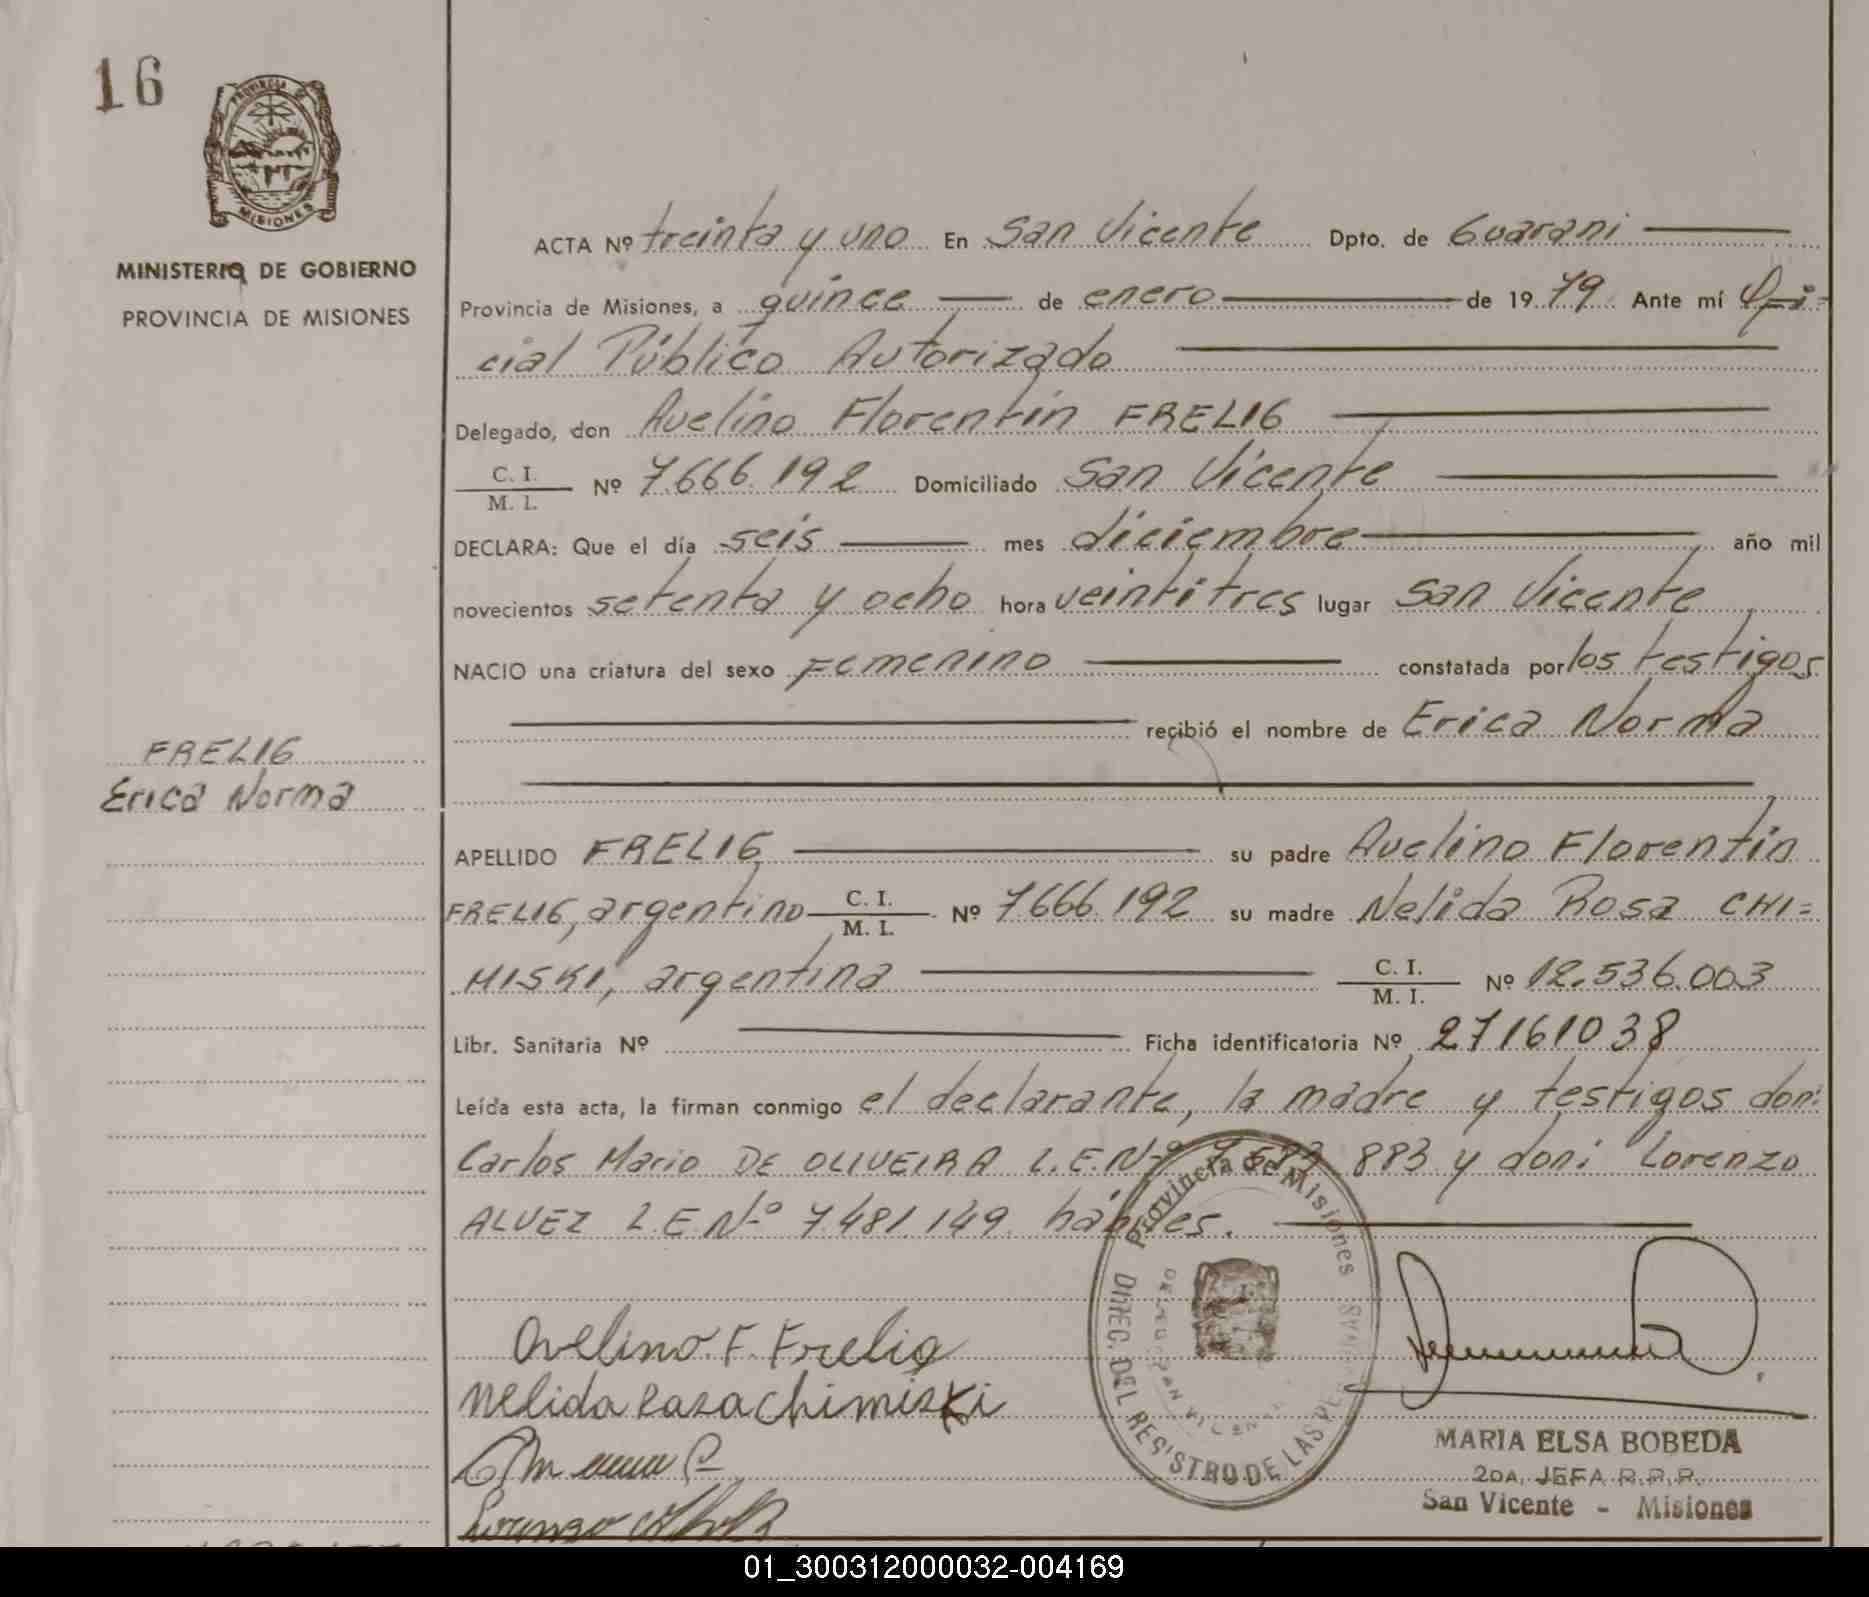 16
PROVINCIA DE
MISIONES
MINISTERIO DE GOBIERNO
PROVINCIA DE MISIONES
FRELIG
Erica Norma
ACTA Nº treinta y uno En San Vicente Dpto. de Guarani
Provincia de Misiones, a quince de enero de 1979 Ante mí Ofi=
cial Público Autorizado
Delegado, don Avelino Florentin FRELIG
C. I.
M. I. Nº 7.666.192 Domiciliado San Vicente
DECLARA: Que el día seis mes diciembre año mil
novecientos setenta y ocho hora veintitres lugar San Vicente
NACIO una criatura del sexo Femenino constatada por los testigos
recibió el nombre de Erica Norma
APELLIDO FRELIG su padre Avelino Florentin
FRELIG, argentino C. I.
M. I. Nº 7666.192 su madre Nelida Rosa CHI=
MISKI, argentina C. I.
M. I. Nº 12.536.003
Libr. Sanitaria Nº Ficha identificatoria Nº 27161038
Leída esta acta, la firman conmigo el declarante, la madre y testigos don:
Carlos Mario DE OLIVEIRA L.E.Nº 883 y don: Lorenzo
ALVEZ L.E.Nº 7.481.149. hábiles.
Provincia de Misiones
DITEC. DEL REGISTRO DE LAS PERSONAS
Avelino. F. Frelig
Nelida Rosa Chimiski
Lorenzo
MARIA ELSA BOBEDA
2DA. JEFA R.P.P.
San Vicente - Misiones
01_300312000032-004169